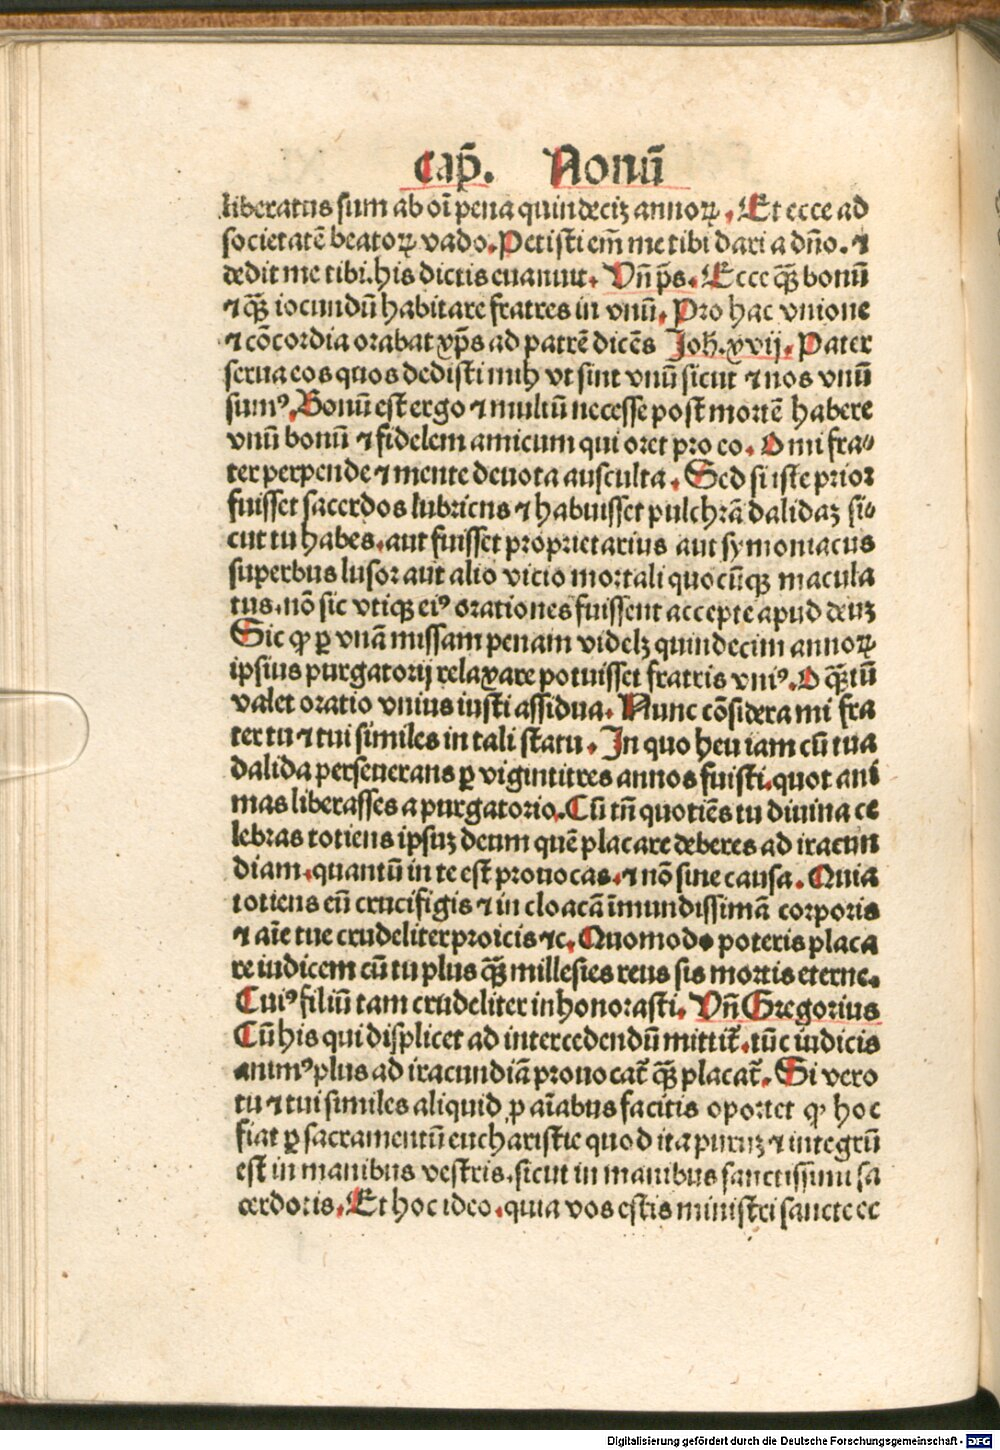 Cap̄. Nonū
liberatus sum ab oī pena quindeciꝫ annoꝝ. Et ecce ad
societatē beatoꝝ vado. Petisti em̄ me tibi dari a dn̄o. ⁊
dedit me tibi. his dictis euanuit. Vn̄ p̄s. Ecce qꝫ̄ bonū
⁊ qꝫ̄ iocundū habitare fratres in vnū. Pro hac vnione
⁊ cōcordia orabat xp̄s ad patrē dicēs Joh̄. xvij. Pater
serua eos quos dedisti mihi vt sint vnū sicut ⁊ nos vnū
sumꝰ. Bonū est ergo ⁊ multū necesse post mortē habere
vnū bonū ⁊ fidelem amicum qui oret pro eo. O mi fra⸗
ter perpende ⁊ mente deuota ausculta. Sed si iste prior
fuisset sacerdos lubricus ⁊ habuisset pulchrā dalidaꝫ si⸗
cut tu habes. aut fuisset proprietarius aut symoniacus
superbus lusor aut alio vicio mortali quocūqꝫ macula
tus. nō sic vtiqꝫ eiꝰ orationes fuissent accepte apud deuꝫ
Sic ꝙ ꝑ vnā missam penam videlꝫ quindecim annoꝝ
ipsius purgatorij relaxare potuisset fratris vniꝰ. O qꝫ̄tū
valet oratio vnius iusti assidua. Nunc cōsidera mi fra
ter tu ⁊ tui similes in tali statu. In quo heu iam cū tua
dalida perseuerans ꝑ vigintitres annos fuisti. quot ani
mas liberasses a purgatorio. Cū tn̄ quotiēs tu diuina ce
lebras totiens ipsuꝫ deum quē placare deberes ad iracun
diam. quantū in te est prouocas. ⁊ nō sine causa. Quia
totiens eū crucifigis ⁊ in cloacā īmundissimā corporis
⁊ aīe tue crudeliter proicis ⁊c. Quomodo poteris placa
re iudicem cū tu plus qꝫ̄ millesies reus sis mortis eterne.
Cuiꝰ filiū tam crudeliter inhonorasti. Vn̄ Gregorius
Cū his qui displicet ad intercedendū mittit̄. tūc iudicis
animꝰ plus ad iracundiā prouocat̄ qꝫ̄ placat̄. Si vero
tu ⁊ tui similes aliquid ꝓ aīabus facitis oportet ꝙ hoc
fiat ꝑ sacramentū eucharistie quod ita puruꝫ ⁊ integrū
est in manibus vestris. sicut in manibus sanctissimi sa
cerdotis. Et hoc ideo. quia vos estis ministri sancte ec
Digitalisierung gefördert durch die Deutsche Forschungsgemeinschaft - DFG